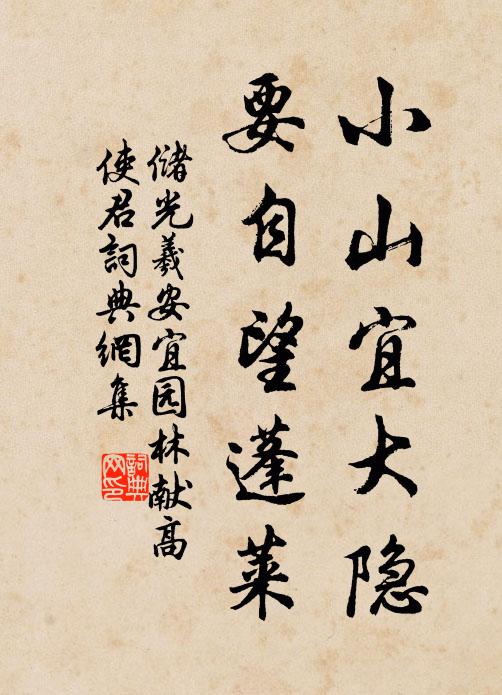 小山宜大隐
要自望蓬莱
储光羲安宜园林献高
使君詞典網集
詞典网印